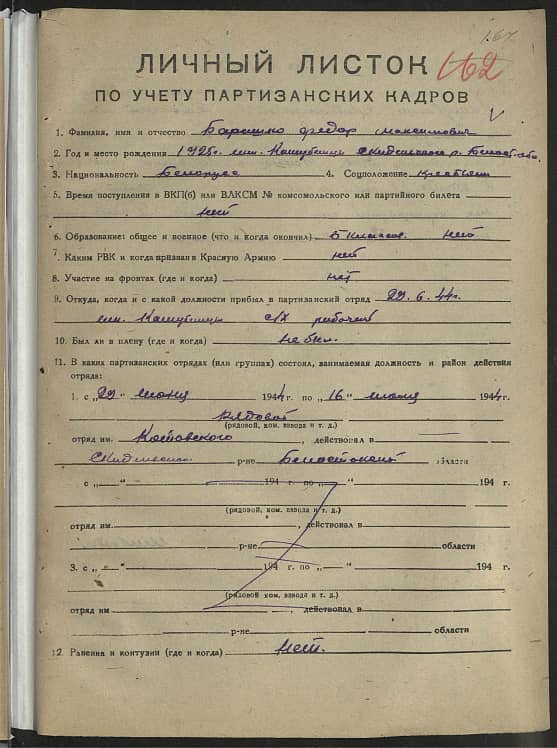 162
ЛИЧНЫЙ ЛИСТОК
ПО УЧЕТУ ПАРТИЗАНСКИХ КАДРОВ
1. Фамилия, имя и отчество Барашко Федор Максимович
2. Год и место рождения 1925г. Скидельского р. Белост. обл.
3. Национальность Белорусс 4. Соцположение крестьян
5. Время поступления в ВКП(б) или ВЛКСМ № комсомольского или партийного билета
нет
6. Образование: общее и военное (что и когда окончил) 5 классов. нет
7. Каким РВК и когда призван в Красную Армию нет
8. Участие на фронтах (где и когда) нет
9. Откуда, когда и с какой должности прибыл в партизанский отряд 29.6.44г.
с/х рабочий
10. Был ли в плену (где и когда) не был.
11. В каких партизанских отрядах (или группах) состоял, занимаемая должность и район действия
отряда:
1. с „29" июня 1944 г. по „16" июля 1944 г.
Рядовой
(рядовой, ком. взвода и т. д.)
отряд им. Котовского, действовал в
Скидельском р-не Белостокской области
с „ " 194 г. по „ " 194 г.
(рядовой, ком. взвода и т. д.)
отряд им. , действовал в
р-не области
3. с „ " 194 г. по „ " 194 г.
(рядовой ком. взвода и т. д.)
отряд им , действовал в
р-не области
12. Ранения и контузии (где и когда) Нет.